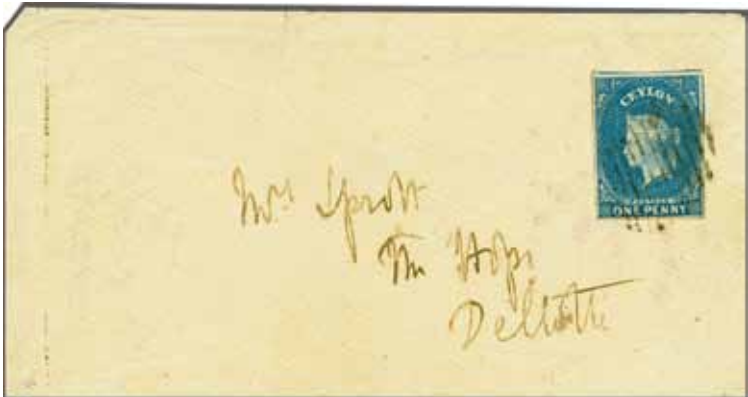 CEYLON
POSTAGE
ONE PENNY
Mrs Sprott
The Hope
Deltotte